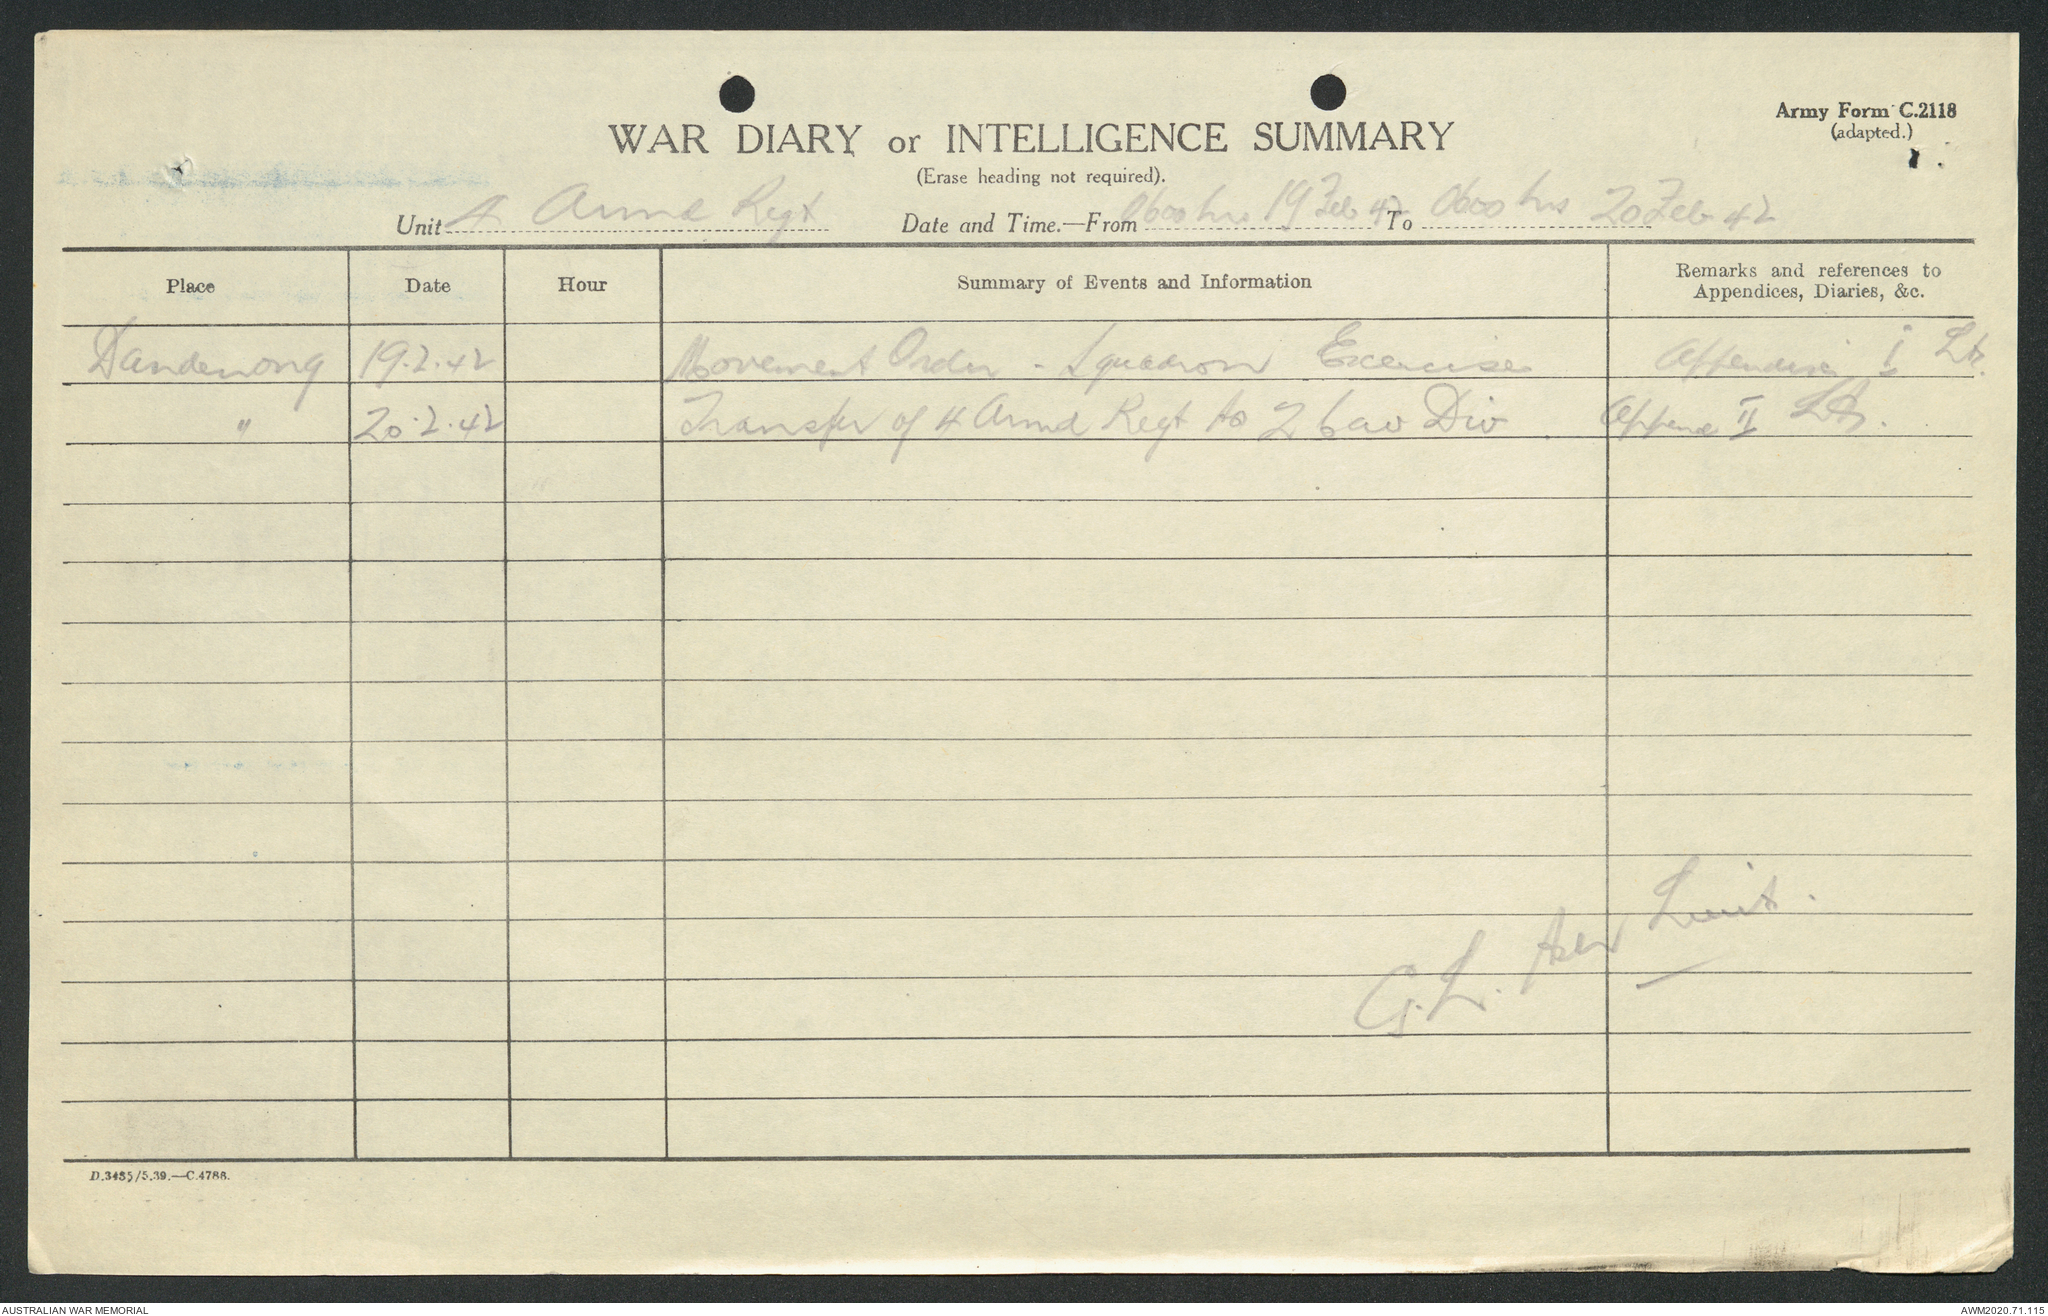 Army Form C.2118
(adapted.)
WAR DIARY or INTELLIGENCE SUMMARY
(Erase heading not required).
Unit 4 Armd Regt Date and Time.—From 0600 hrs 19 Feb 42 To 0600 hrs 20 Feb 42
Place Date Hour Summary of Events and Information Remarks and references to
Appendices, Diaries, &c.
Dandenong 19.2.42 Movement Order - Squadron Exercises Appendix I
" 20.2.42 Transfer of 4 Armd Regt to 2 Cav Div. Append II
G.L. Lieut.
D.3435/5.39.—C.4788.
AUSTRALIAN WAR MEMORIAL
AWM2020.71.115